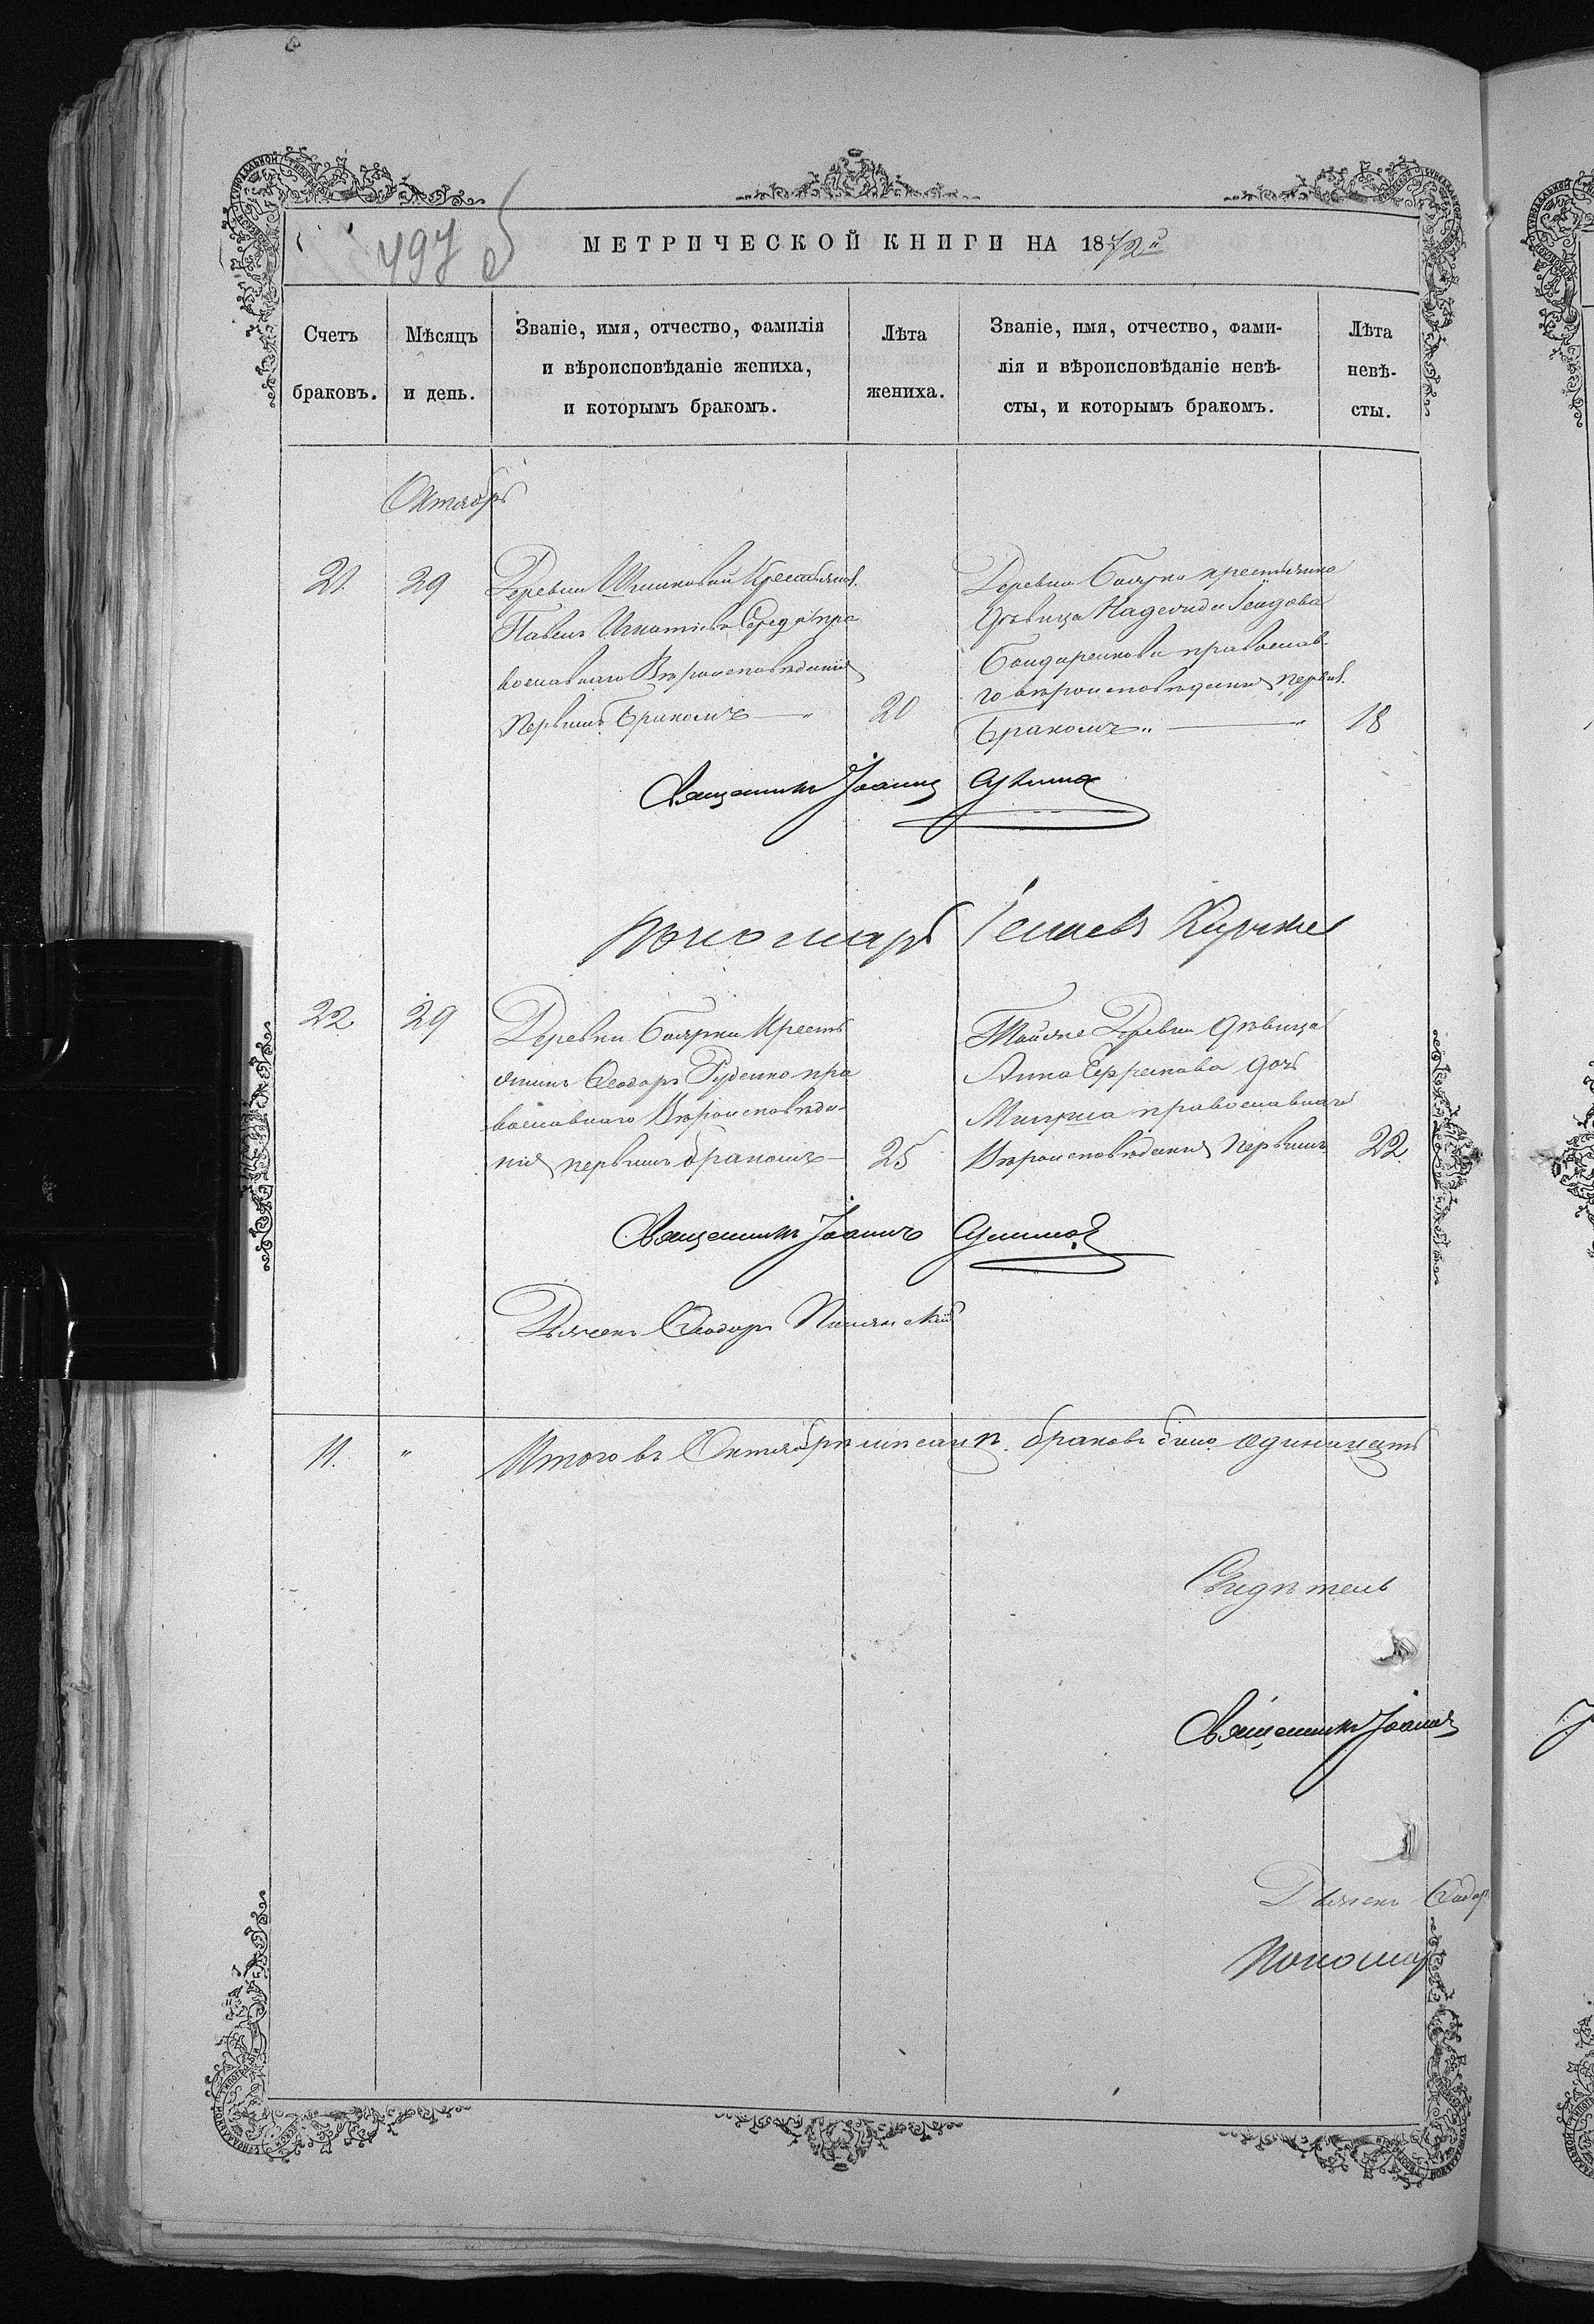 497 б
МЕТРИЧЕСКОЙ КНИГИ НА 1872й
Счетъ браковъ.
Мѣсяцъ и день.
Званіе, имя, отчество, фамилія
и вѣроисповѣданіе жениха,
и которымъ бракомъ.
Лѣта жениха.
Званіе, имя, отчество, фами-
лія и вѣроисповѣданіе невѣ-
сты, и которымъ бракомъ.
Лѣта невѣ-
сты.
Октябрь
21.
29
Деревни
Павелъ Игнатіевъ Середа пра
вославнаго Вѣроисповѣданія
первымъ бракомъ
20
Деревни Боярки крестьянка
дѣвица
Бондаренкова православ-
го вѣроисповѣданія первы.
бракомъ
18
Священникъ Іоаннъ
Пономарь
22
29
Деревни Боярки Кресть
янинъ Ѳеодоръ Руденко пра
вославнаго Вѣроисповѣда-
нія первымъ бракомъ
25
Тойже Деревни дѣвица
Анна Ефремова дочь
православнаго
Вѣроисповѣданія первымъ
22
Священникъ Іоаннъ
Дьячекъ Ѳеодоръ
11.
"
Итого въ Октябрѣ мѣсяцѣ браковъ было одинадцать
Священникъ Іоаннъ
Дьячекъ Ѳеодор
Пономар